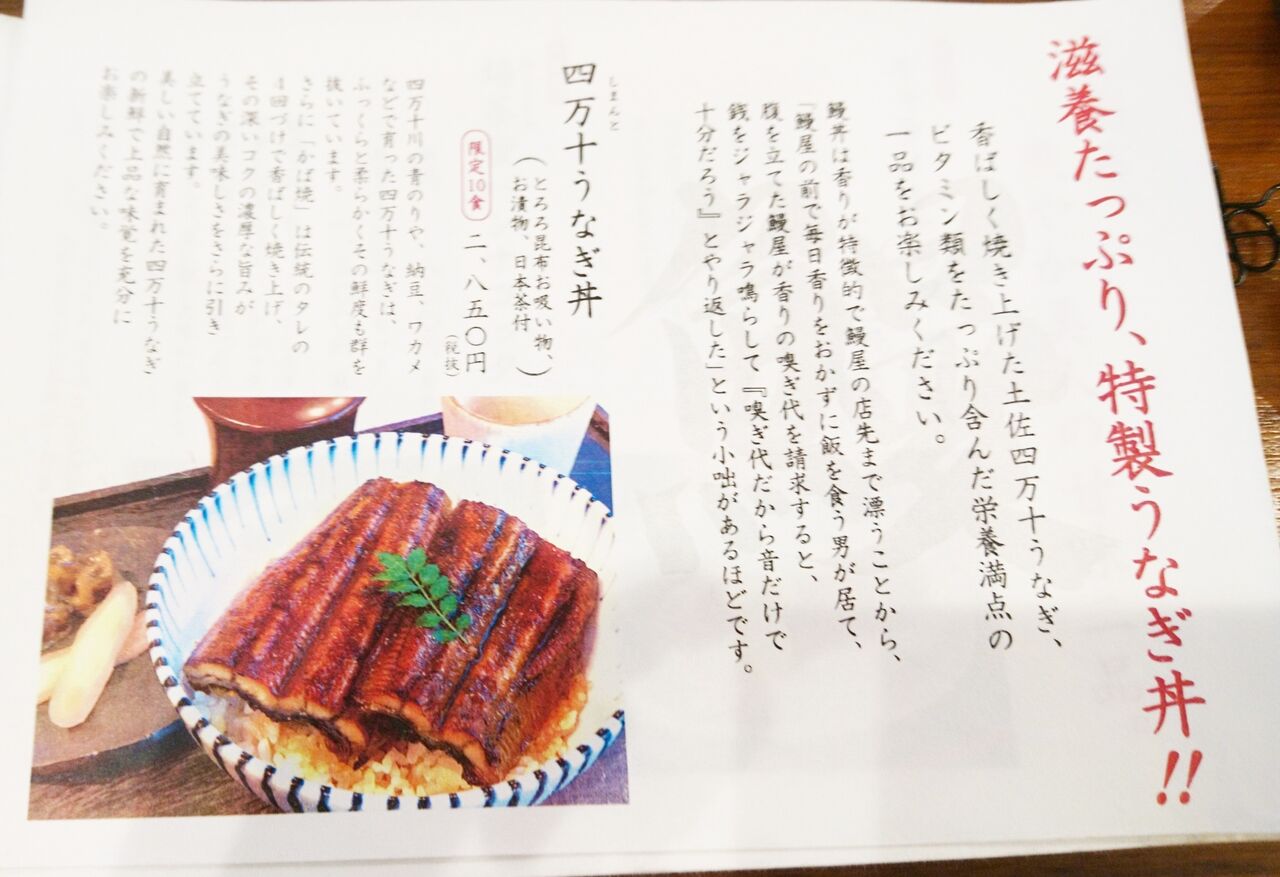 滋養たっぷり、特製うなぎ丼!!
香ばしく焼き上げた土佐四万十うなぎ、
ビタミン類をたっぷり含んだ栄養満点の
一品をお楽しみください。
鰻丼は香りが特徴的で鰻屋の店先まで漂うことから、
「鰻屋の前で毎日香りをおかずに飯を食う男が居て、
腹を立てた鰻屋が香りの嗅ぎ代を請求すると、
銭をジャラジャラ鳴らして『嗅ぎ代だから音だけで
十分だろう』とやり返した」という小咄があるほどです。
しまんと
四万十うなぎ丼
(とろろ昆布お吸い物、
お漬物、日本茶付)
限定10食
二、八五〇円
(税抜)
四万十川の青のりや、納豆、ワカメ
などで育った四万十うなぎは、
ふっくらと柔らかくその鮮度も群を
抜いています。
さらに「かば焼」は伝統のタレの
4回づけで香ばしく焼き上げ、
その深いコクの濃厚な旨みが
うなぎの美味しさをさらに引き
立てています。
美しい自然に育まれた四万十うなぎ
の新鮮で上品な味覚を充分に
お楽しみください。